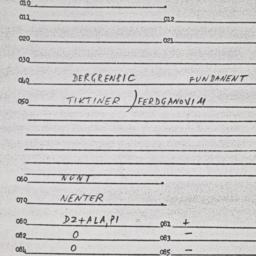 010
011 012
020 021
030
040 DERGRENRIC FUNDANENT
050 TIKTINER )FERDGANOVIM
060 NUNT
070 NENTER
080 DZ+ALA,PI 081 +
082 0 083 -
084 0 085 -